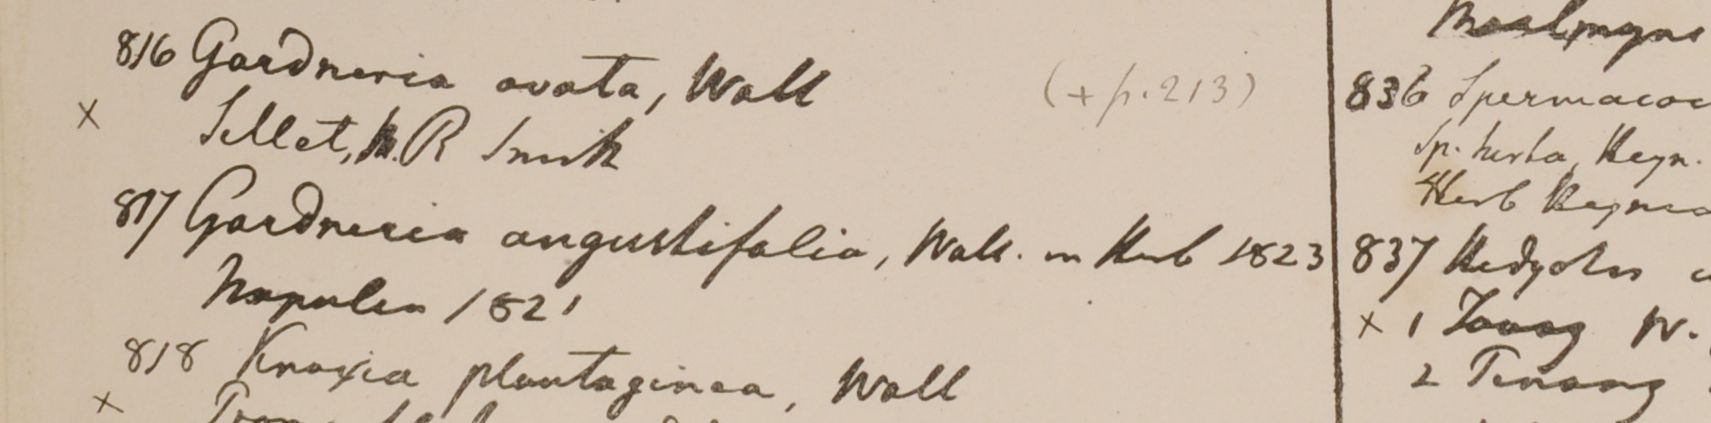 816 Gardneria ovata, Wall (+ p. 213)
x Sillet, M. R Smith
817 Gardneria angustifolia, Wall. in Herb 1823
Napalia 1821
818 Knoxia plantaginea, Wall
x
836 Spermacoc
Sp. hirta, Heyn.
Herb Heynea
837 Hedyotis
x 1 Tavoy W.
2 Penang